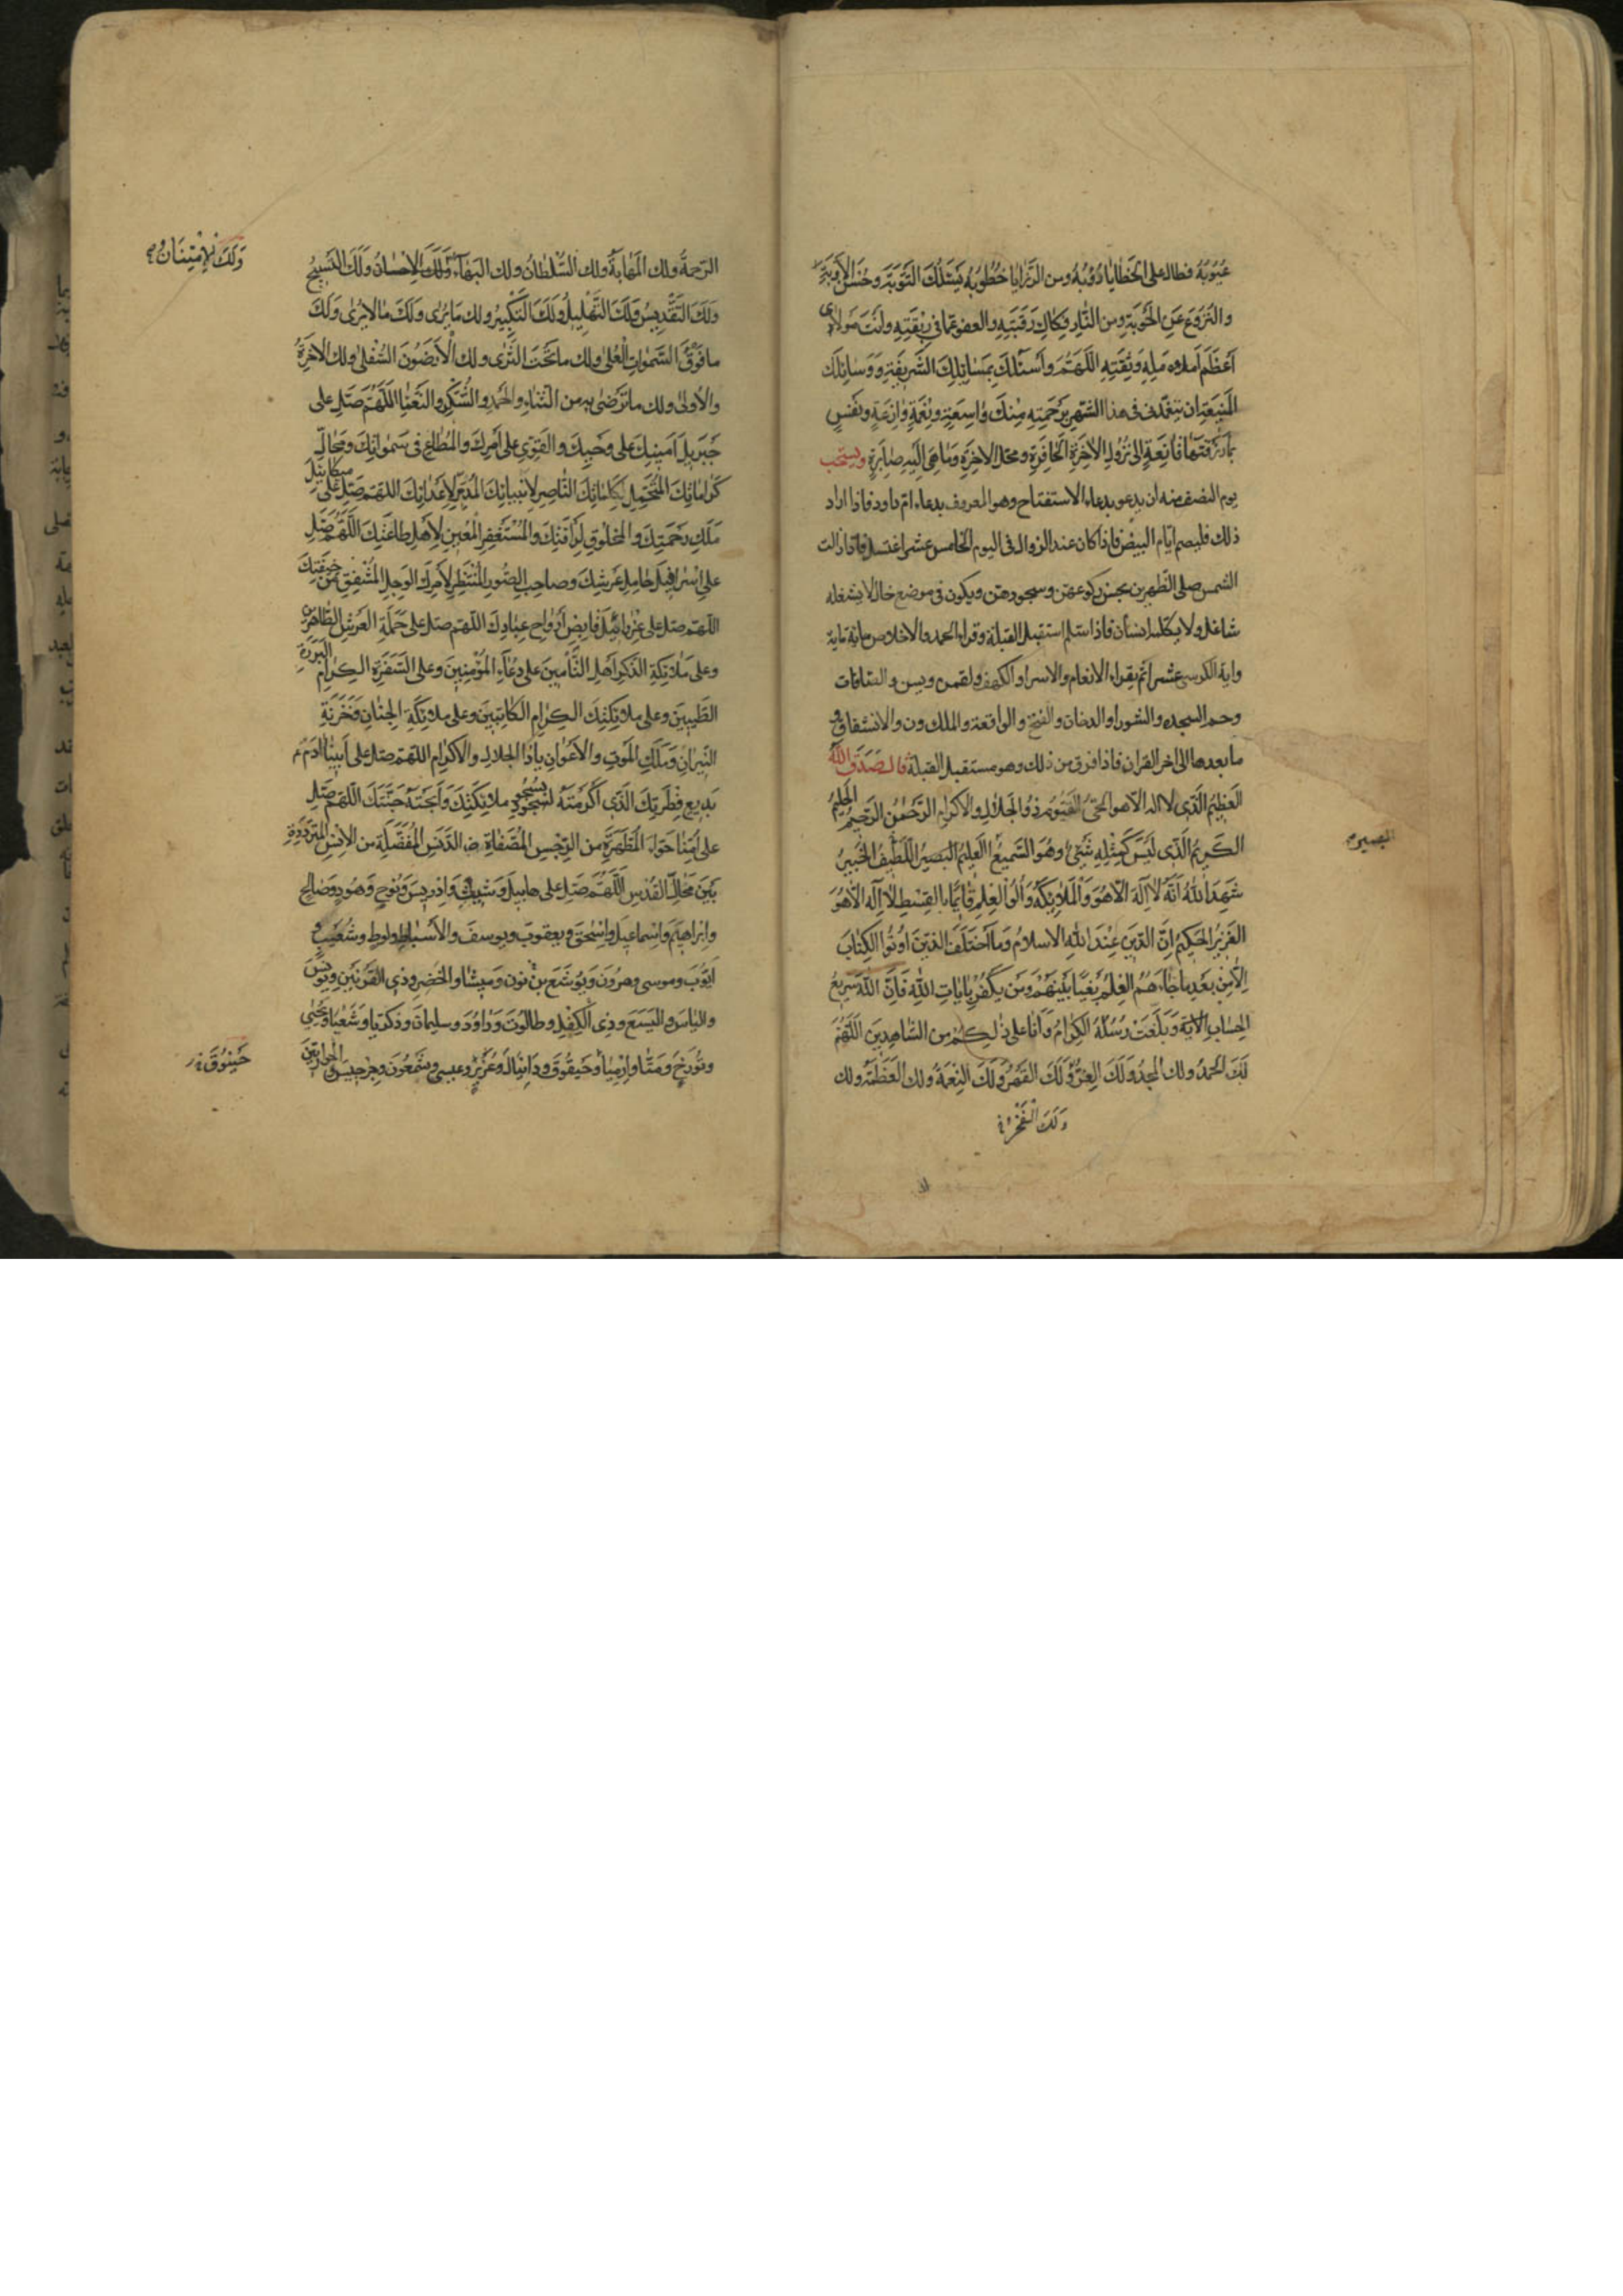 عُيُوبُهُ فطال على الخَطايا دُؤبُهُ ومن الرَّزايا خُطُوبُهُ يَسْئَلُكَ التَّوْبَةَ وحُسْنَ الأَوْبَةِ
والنُّزوعَ عَنِ الحَوْبَةِ ومن النّارِ فِكاكَ رَقَبَتِهِ والعفو عَمّا في رِبْقَتِهِ وأنتَ مَولاىَ
أَعْظَمُ أَمَلِهِ وَثِقَتِهِ اللَّهُمَّ وأَسْئَلُكَ بِمَسائِلِكَ الشَّريفَةِ وَوَسائِلِكَ
المَنيعَةِ ان تتغمّدنى فى هذا الشّهر برَحمَتِهِ مِنكَ واسِعَةٍ ونِعْمَةٍ وازِعَةٍ ونَفْسٍ
بما رَزَقْتَها قانِعَةٍ إلى نُزُولِ الحافِرَةِ ومحلّ الاخِرَةِ وَما هِىَ إليهِ صايِرَةٌ ويستحب
يوم النصف منه ان يدعو بدعاء الاستفتاح وهو المعروف بدعاء امّ داود فاذا اراد
ذلك فليصم ايّام البيض فاذا كان عند الزوال فى اليوم الخامس عشر اغتسل فاذا زالت
الشمس صلى الظهرين يحسن ركوعهن وسجودهن ويكون فى موضع خال لا يشغله
شاغل ولا يكلمه انسان فاذا سلم استقبل القبلة وقراء الحمد والاخلاص ماية ماية
واية الكرسى عشرا ثم يقراء الانعام والاسرا والكهف ولقمن ويس والصافات
وحم السجده والشورا والدخان والفتح والواقعة والملك ون والانشقاق و
ما بعدها الى اخر القران فاذا فرق من ذلك وهو مستقبل القبلة قال صَدَقَ اللهُ
العَظيمُ الّذى لا اله الّا هو الحىُّ القيّوم ذُو الجَلالِ والاكرام الرَّحْمنُ الرَّحيمُ الحَليمُ
الكَريمُ الَّذِى لَيْسَ كَمِثْلِهِ شَىْءٌ وهُوَ السَّميعُ العَليمُ البَصيرُ اللَّطيفُ الخَبيرُ
البصير م
شَهِدَ اللهُ اَنَّهُ لا إلهَ الّا هُوَ وَالْمَلائِكَةُ وَأُلُوا الْعِلْمِ قائِمًا بِالقِسْطِ لا إله الّا هُوَ
العَزيزُ الحَكيمُ إنَّ الدّينَ عِنْدَ اللهِ الاسلامُ وَمَا اخْتَلَفَ الّذينَ أُوتُوا الكِتابَ
إلّا مِنْ بَعْدِ ما جاءَهُمُ العِلْمُ بَغْيًا بَيْنَهُمْ وَمَن يَكْفُرْ بِاياتِ اللهِ فَإنَّ اللهَ سَريعُ
الحِسابِ الاية وَبَلَّغَتْ رُسُلُهُ الكِرامُ وَأنا على ذلِكُمْ من الشّاهِدينَ اللَّهُمَّ
لَكَ الحَمْدُ ولك المجدُ وَلَكَ العِزُّ وَلَكَ القَهْرُ وَلَكَ النِّعْمَةُ ولك العَظَمَةُ ولك
وَلَكَ الفَخْرُ
الرّحمَةُ ولك المَهابَةُ ولك السُّلْطانُ ولك البَهاءُ وَلَكَ الإحْسانُ وَلَكَ التَّسبيحُ
وَلَكَ الإمْتِنانُ
وَلَكَ التَّقْديسُ وَلَكَ التَّهْليلُ وَلَكَ التَّكْبيرُ ولك مَا يُرى وَلَكَ ما لا يُرى وَلَكَ
ما فَوْقَ السَّمواتِ العُلى ولك ما تَحْتَ الثَّرى ولك الأَرَضُونَ السُّفْلى ولك الاخِرَةُ
والأولى ولك ما تَرْضى به من الثّناءِ والحَمْدِ والشُّكْرِ والنَّعْمَا اللَّهُمَّ صَلِّ على
جَبْرَئيلَ أمينِكَ على وَحْيِكَ والقَوِىِّ على أَمْرِكَ والمُطاعِ فى سَمواتِكَ ومَحالِّ
كَراماتِكَ المُتَحَمِّلِ لِكَلِماتِكَ النّاصِرِ لأنبيائِكَ المُدَمِّرِ لأعْدائِكَ اللهمّ صَلِّ عَلى ميكائيلَ
مَلَكِ رَحْمَتِكَ والمخْلوقِ لِرَأفَتِكَ والمُسْتَغْفِرِ المُعينِ لأهْلِ طاعَتِكَ اللَّهُمَّ صَلِّ
على إسْرافيلَ حامِلِ عَرشِكَ وصاحِبِ الصُّورِ المُنْتَظِرِ لأمْرِكَ الوَجِلِ المُشْفِقِ مِنْ خيفَتِكَ
اللّهمّ صل على عزرائيل قابِضِ أَرْواحِ عِبادِكَ اللّهم صل على حَمَلَةِ العَرشِ الطّاهِرينَ
وعلى مَلائِكَةِ الذِّكْرِ أهلِ التّأمينَ على دُعاءِ المُؤْمِنينَ وعلى السَّفَرَةِ الكِرامِ البَرَرَةِ
الطَّيِّبينَ وعلى ملائِكَتِكَ الكِرامِ الكاتِبينَ وعلى ملائِكَةِ الجِنانِ وَخَزَنَةِ
النّيرانِ وَمَلَكِ المَوْتِ والأعْوانِ ياذا الجلالِ والاكرام اللهم صل على أبينا ادَمَ
بَديعِ فِطْرَتِكَ الّذى أَكْرَمْتَهُ بسُجُودِ ملائِكَتِكَ وَأَبَحْتَهُ جَنَّتَكَ اللّهمّ صَلِّ
على أُمِّنا حَوّاءَ المُطَهَّرَةِ من الرِّجْسِ المُصَفّاةِ من الدَّنَسِ المُفَضَّلَةِ من الانْسِ المُتَرَدِّدَةِ
بَيْنَ مَحالِّ القُدْسِ اللَّهُمَّ صَلِّ على هابيلَ وَشيثٍ وَإدْريسَ وَنُوحٍ وَهُودٍ وَصالِحٍ
وإبراهيمَ وَإسْماعيلَ وإسْحقَ ويعقوبَ ويوسفَ والأسْباطِ ولوطٍ وشُعَيْبٍ و
أيّوبَ وموسى وهرُونَ وَيُوشَعَ بنِ نون ومِيشا والخِضْرِ وذى القَرْنَيْنِ ويُونُسَ
والياسَ واليَسَعَ وذى الكِفْلِ وطالُوتَ وَداوُدَ وسليمانَ وزكريا وَشَعْيا ويَحْيى
وتُورَخَ وَمَتّا وإرْمِيا وحَيقُوقَ ودانيالَ وعُزَيْرٍ وعيسى وشَمْعُونَ وجِرْجيسَ والحواريّينَ
حَيْنُوقَ